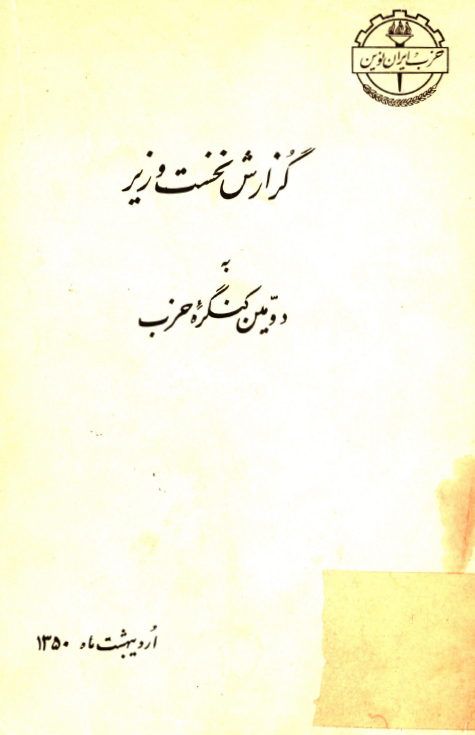 حزب ایران نوین
گزارش نخست وزیر
به
دوّمین کنگرهٔ حزب
اُردیبهشت ماه ۱۳۵۰